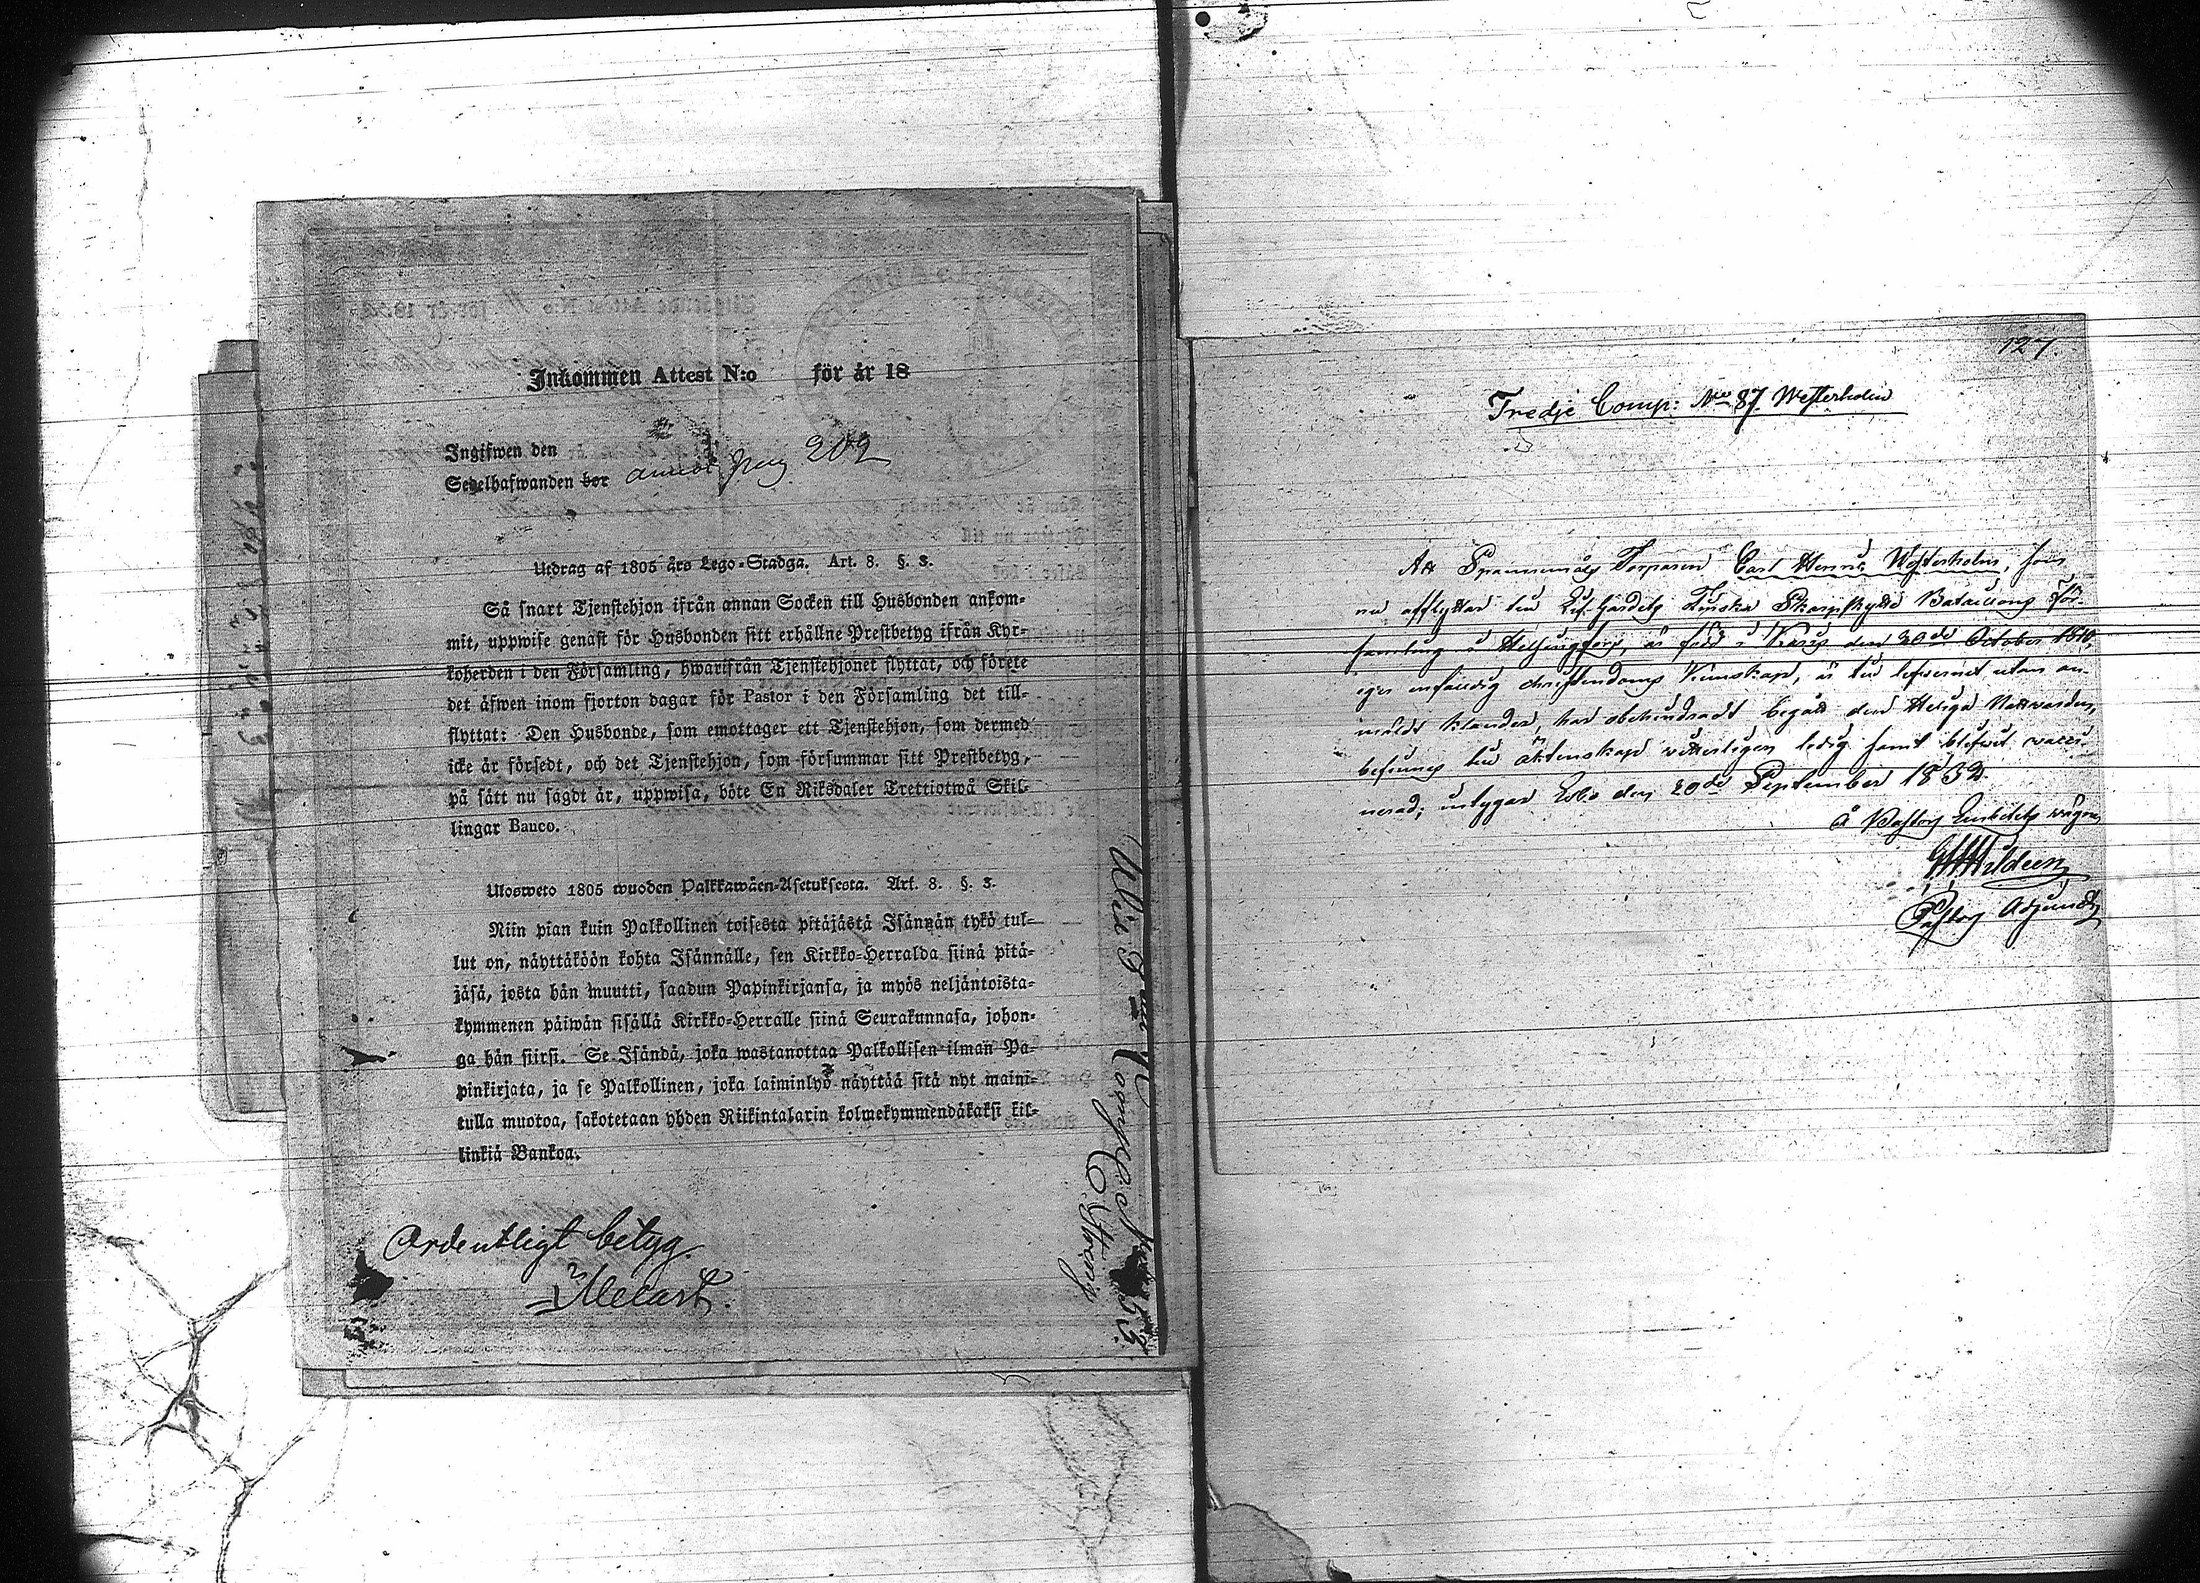 Inkommen Attest N:o för år 18
Ingifwen den
Sedelhafwanden bor annot. pag. 202
Utdrag af 1805 års Lego-Stadga. Art. 8. §. 3.
Så snart Tjenstehjon ifrån annan Socken till Husbonden ankom-
mit, uppwise genast för Husbonden sitt erhållne Prestbetyg ifrån Kyr-
koherden i den Församling, hwarifrån Tjenstehjonet flyttat, och förete
det äfwen inom fjorton dagar för Pastor i den Församling det till-
flyttat: Den Husbonde, som emottager ett Tjenstehjon, som dermed
icke är försedt, och det Tjenstehjon, som försummar sitt Prestbetyg,
på sätt nu sagdt är, uppwisa, böte En Riksdaler Trettiotwå Skil-
lingar Banco.
Ulosweto 1805 wuoden Palkkawäen-Asetuksesta. Art. 8. §. 3.
Niin pian kuin Palkollinen toisesta pitäjästä Isännän tykö tul-
lut on, näyttäköön kohta Isännälle, sen Kirkko-Herralda siinä pitä-
jäsä, josta hän muutti, saadun Papinkirjansa, ja myös neljäntoista-
kymmenen päiwän sisällä Kirkko-Herralle siinä Seurakunnasa, johon-
ga hän siirsi. Se Isändä, joka wastanottaa Palkollisen ilman Pa-
pinkirjata, ja se Palkollinen, joka laiminlyö näyttää sitä nyt maini-
tulla muotoa, sakotetaan yhden Riikintalarin kolmekymmendäkaksi kil-
linkiä Bankoa.
Ordentligt betyg.
127.
Tredje Comp: No 87 Westerholm
Att Spannemåls Torparen Carl Henric Westerholm, som
nu afflyttar till Lif-Gardets Finska Skarpskytte Bataillons För-
samling i Helsingfors, är född i Karis den 20de October 1810,
eger enfaldig christendoms Kunskap, är till lefwernet utan an-
märkt klander, har obehindradt begått den Heliga Nattvarden,
befinnes till äktenskap witterligen ledig samt blifwit vacci-
nerad; intygar Esbo den 20de September 1832.
å Pastors Embetets wägnar
Pastors Adjunct